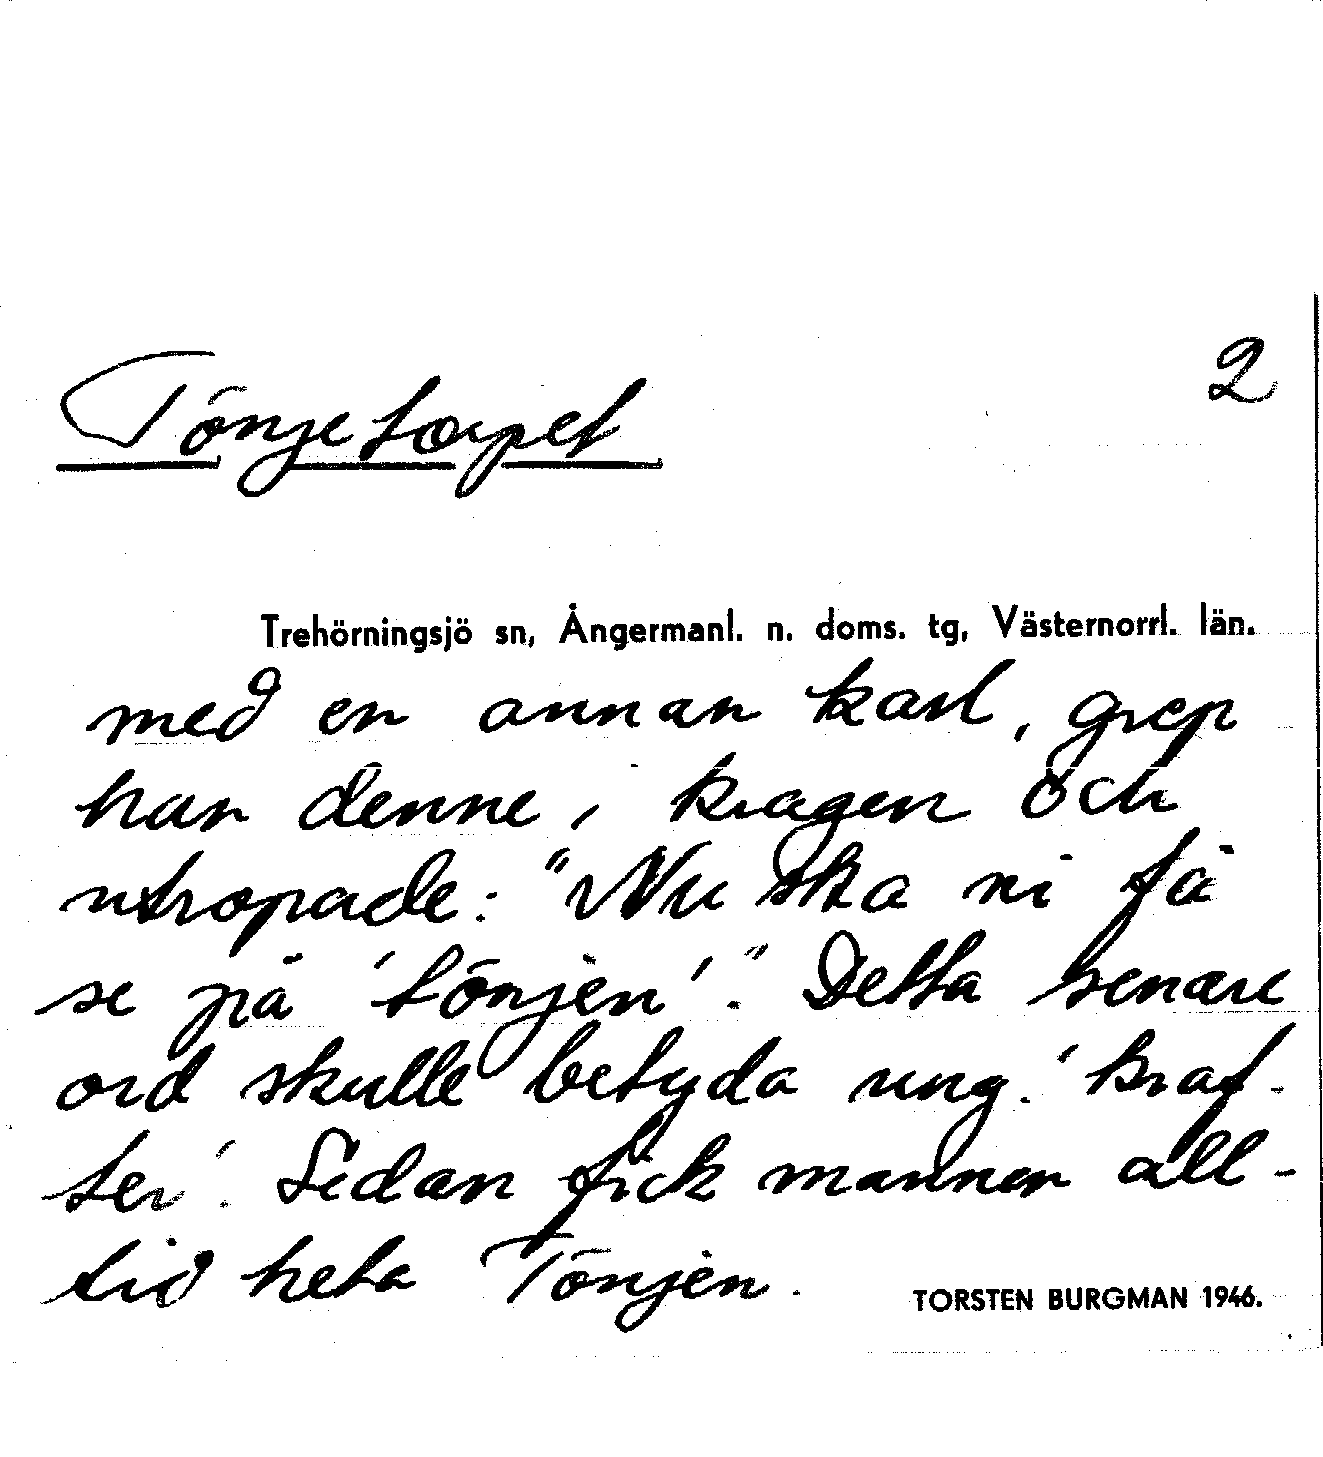 Tönjetorpet 2
Trehörningsjö sn, Ångermanl. n. doms. tg, Västernorrl. län.
med en annan karl, grep
han denne i kragen och
utropade: "Nu ska ni få
se på 'tönjen'." Detta senare
ord skulle betyda ung. 'kraf-
ter'. Sedan fick mannen all-
tid heta Tönjen.
TORSTEN BURGMAN 1946.